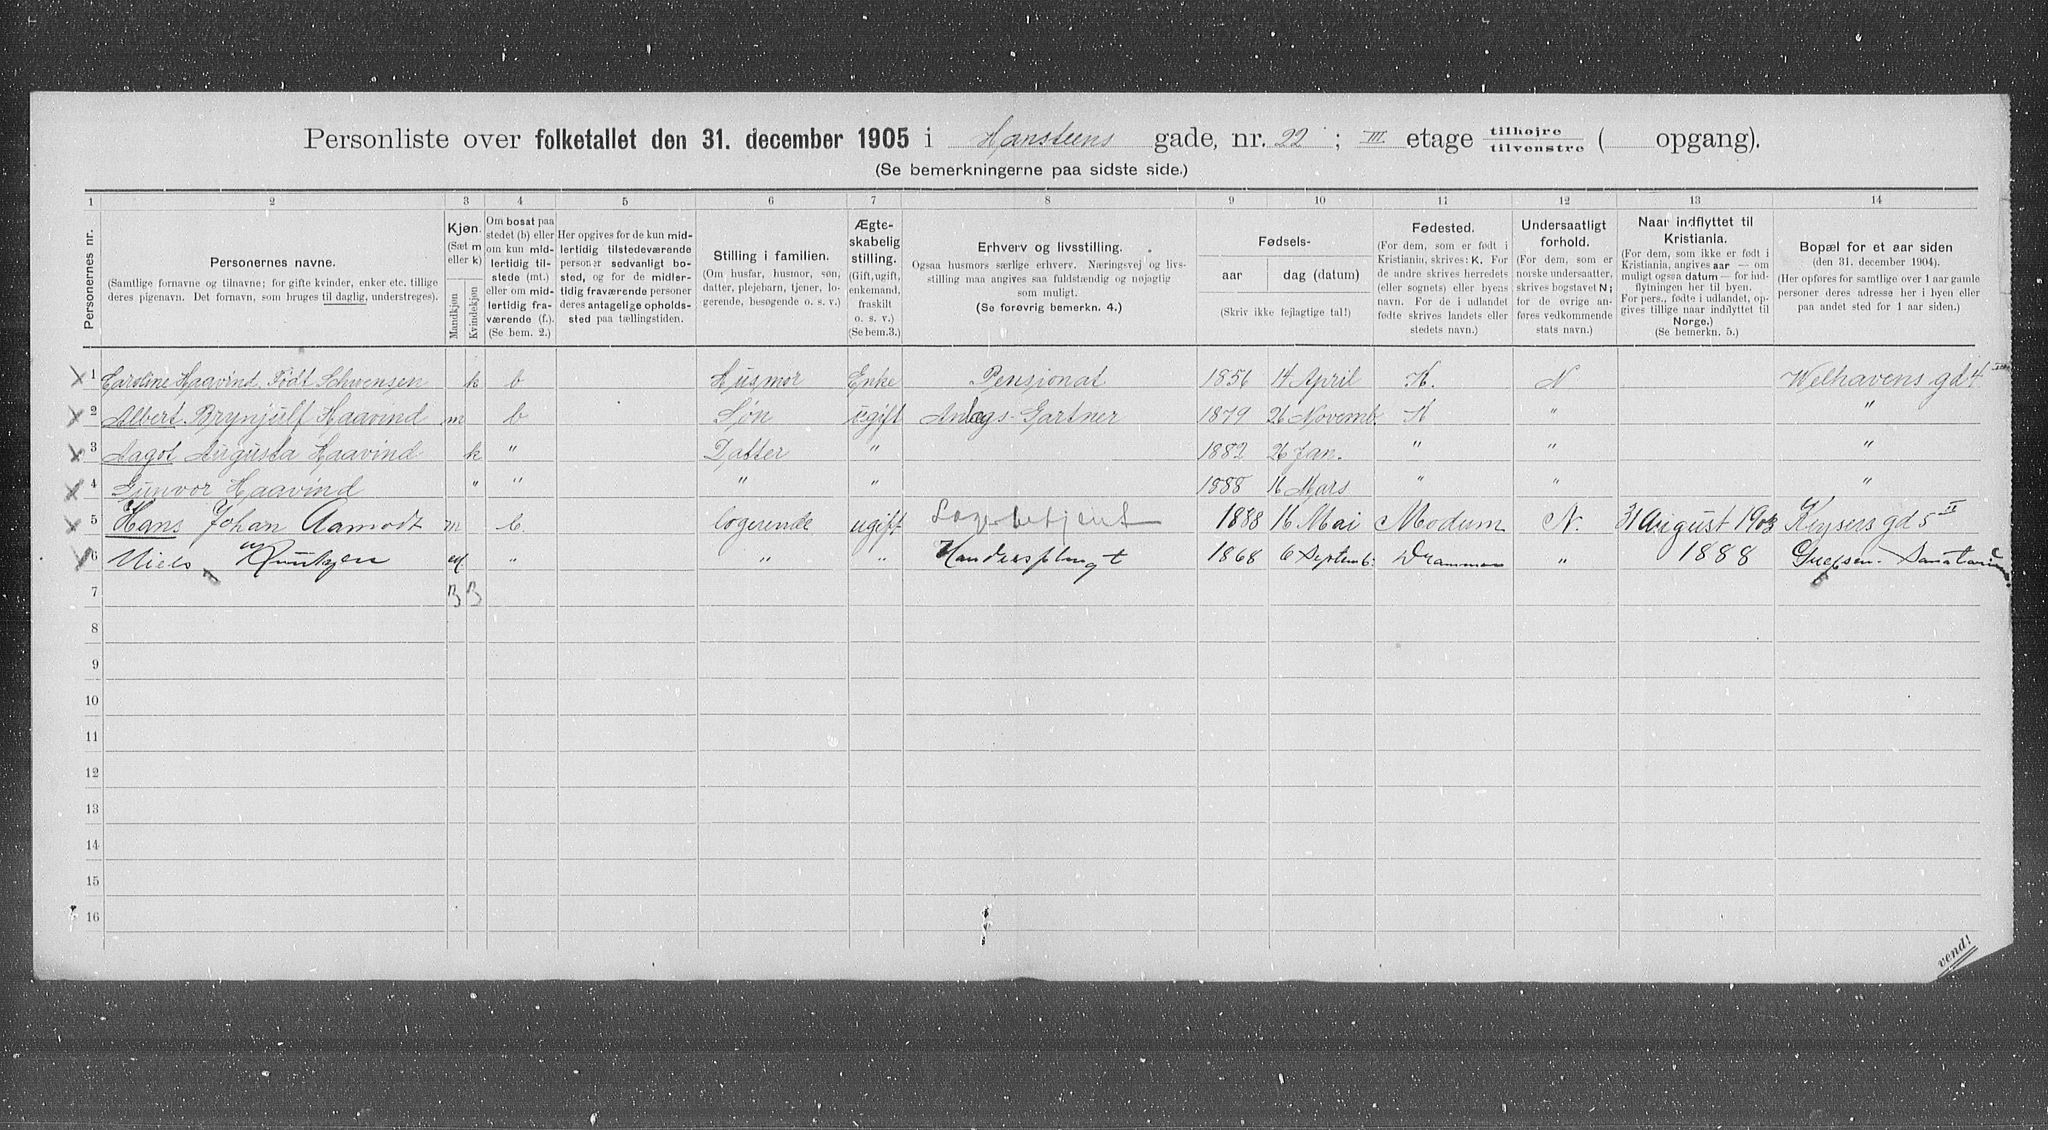 Personliste over folketallet den 31. december 1905 i Hansteens gade, nr. 22; III etage tilhøjre tilvenstre ( opgang).
(Se bemerkningerne paa sidste side.)
1 2 3 4 5 6 7 8 9 10 11 12 13 14
Personernes nr.
Personernes navne.
(Samtlige fornavne og tilnavne; for gifte kvinder, enker etc. tillige
deres pigenavn. Det fornavn, som bruges til daglig, understreges).
Kjøn.
(Sæt m
eller k)
Mandkjøn
Kvindekjøn
Om bosat paa
stedet (b) eller
om kun mid-
lertidig til-
stede (mt.)
eller om mid-
lertidig fra-
værende (f.).
(Se bem. 2.)
Her opgives for de kun mid-
lertidig tilstedeværende
personer sedvanligt bo-
sted, og for de midler-
tidig fraværende personer
deres antagelige opholds-
sted paa tællingstiden.
Stilling i familien.
(Om husfar, husmor, søn,
datter, plejebarn, tjener, lo-
gerende, besøgende o. s. v.)
Ægte-
skabelig
stilling.
(Gift, ugift,
enkemand,
fraskilt
o. s. v.)
(Se bem.3.)
Erhverv og livsstilling.
Ogsaa husmors særlige erhverv. Næringsvej og livs-
stilling maa angives saa fuldstændig og nøjagtig
som muligt.
(Se forøvrig bemerkn. 4.)
Fødsels-
aar
dag (datum)
(Skriv ikke fejlagtige tal!)
Fødested.
(For dem, som er født i
Kristiania, skrives: K. For
de andre skrives herredets
(eller sognets) eller byens
navn. For de i udlandet
fødte skrives landets eller
stedets navn.)
Undersaatligt
forhold.
(For dem, som er
norske undersaatter,
skrives bogstavet N;
for de øvrige an-
føres vedkommende
stats navn.)
Naar indflyttet til
Kristiania.
(For dem, som ikke er født i
Kristiania, angives aar — om
muligt ogsaa datum — for ind-
flytningen her til byen.
For pers., fødte i udlandet, op-
gives tillige naar indflyttet til
Norge.)
(Se bemerkn. 5.)
Bopæl for et aar siden
(den 31. december 1904).
(Her opføres for samtlige over 1 aar gamle
personer deres adresse her i byen eller
paa andet sted for 1 aar siden.)
1 Caroline Haavind. Født Schwensen k b Husmor Enke Pensionat 1856 14 April K. N Welhavens gd 4
2 Albert Brynjulf Haavind m b Søn ugift Anlægs-Gartner 1879 26 Novemb. K " "
3 Aagot Augusta Haavind k " Datter " 1882 26 Jan. " " "
4 Gunvor Haavind " " " " 1888 16 Mars " " "
5 Hans Johan Aamodt m b. logerende ugift Lagerbetjent 1888 16 Mai Modum N. 31 August 1903 Keysers gd 5 II
6 Niels " " " 1868 6 Septemb: Drammen " 1888 Grefsen. Sanatorium
7 B B
8
9
10
11
12
13
14
15
16
vend!